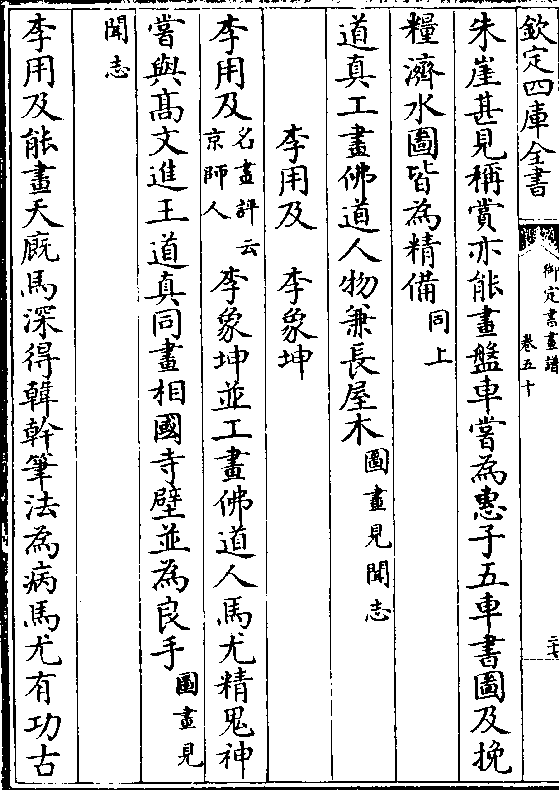 欽定四庫全書
御定書畫譜
卷五十
二十
朱崖甚見稱賞亦能畫盤車嘗為惠子五車書圖及挽
糧濟水圖皆為精備同上
道真工畫佛道人物兼長屋木圖畫見聞志
李用及 李象坤
李用及名畫評云京師人李象坤並工畫佛道人馬尤精鬼神
嘗與高文進王道真同畫相國寺壁並為良手圖畫見
聞志
李用及能畫天廐馬深得韓幹筆法為病馬尤有功古